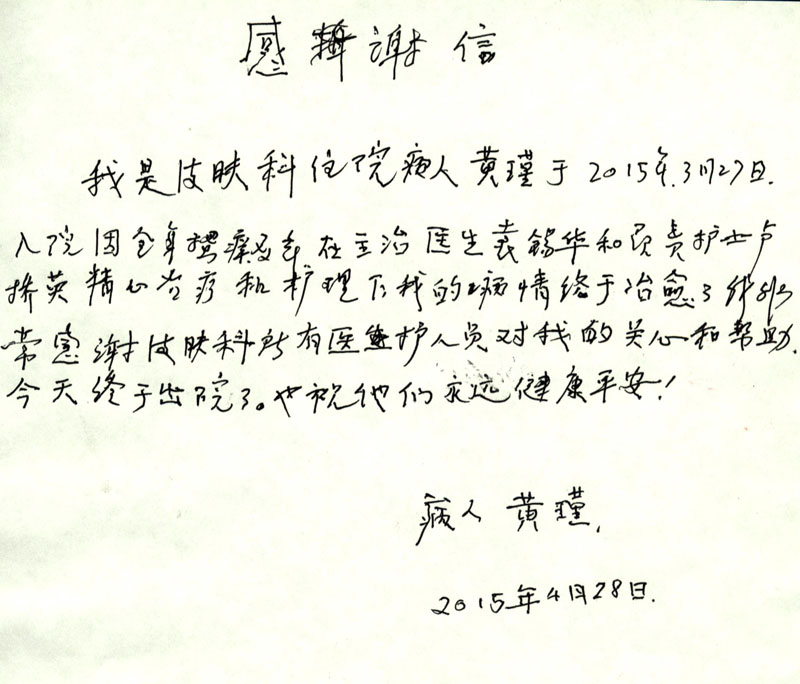 感谢信
我是皮肤科住院病人黄瑾于2015年.3月27日.
入院因全身搔痒 在主治医生袁锡华和负责护士卢
精心治疗和护理下我的病情终于治愈了我非
常感谢皮肤科所有医护人员对我的关心和帮助.
今天终于出院了。也祝他们永远健康平安!
病人 黄瑾.
2015年4月28日.